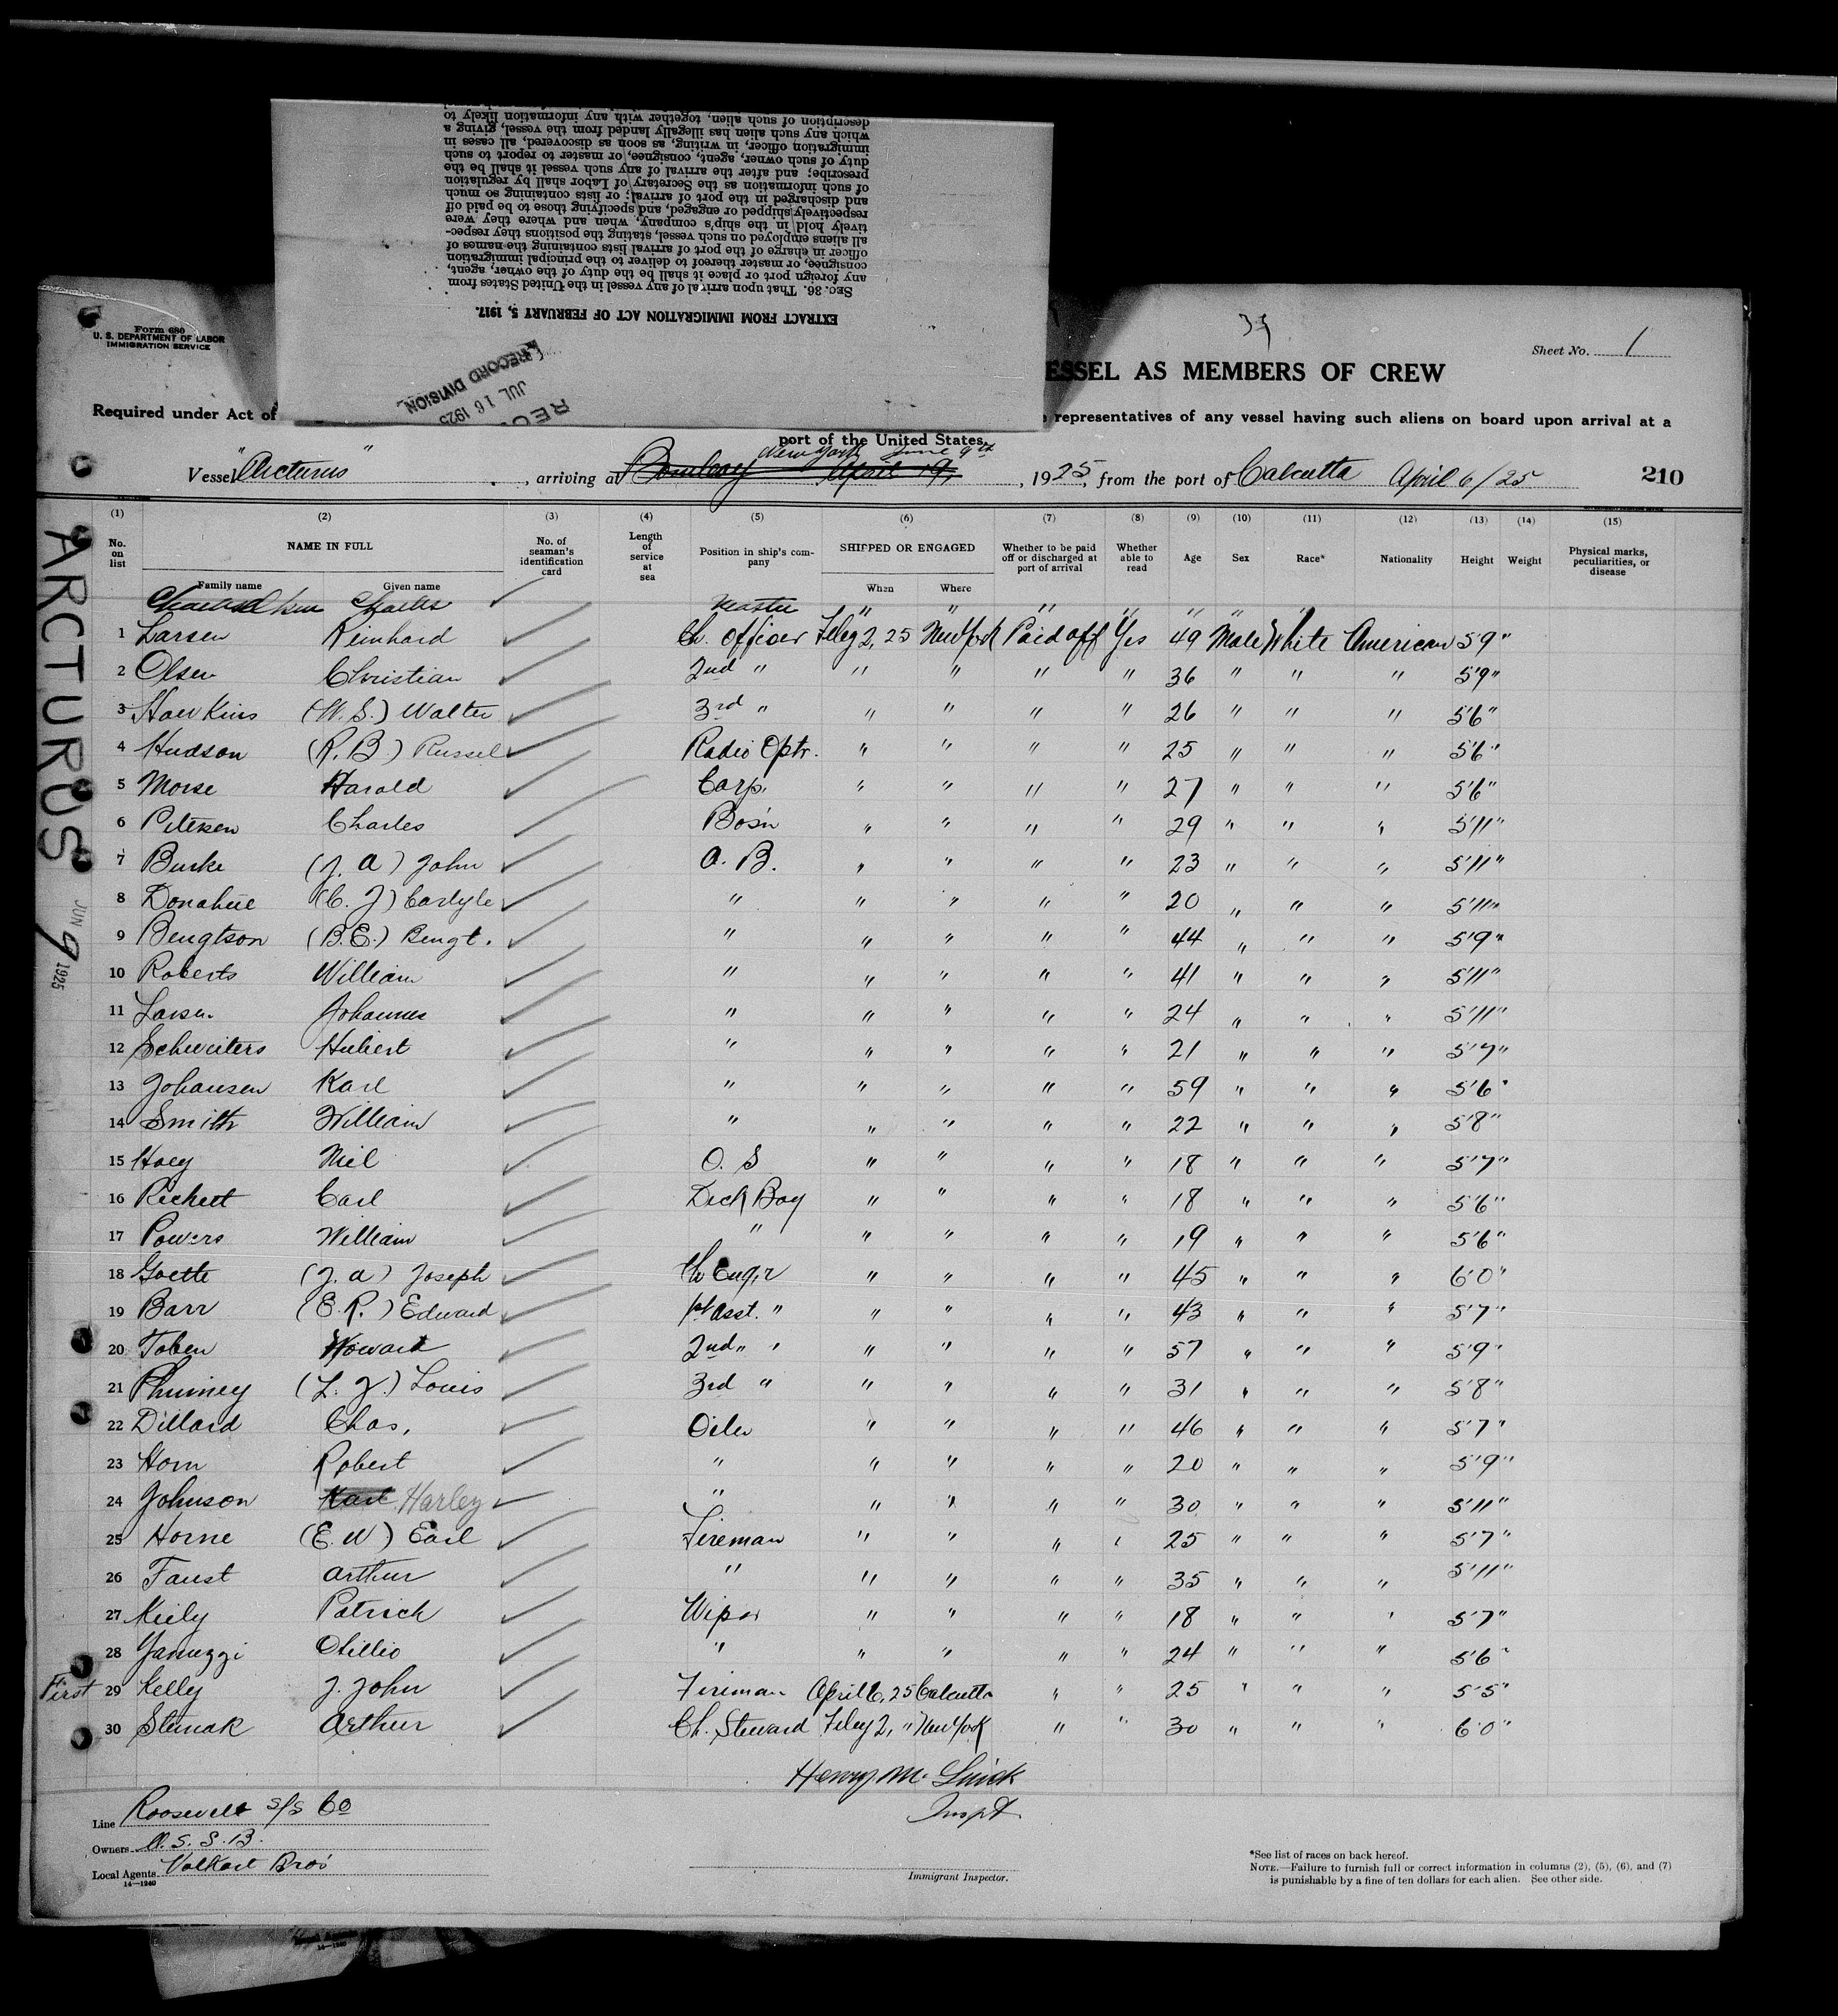 EXTRACT FROM IMMIGRATION ACT OF FEBRUARY 5, 1917.
SEC. 36. That upon arrival of any vessel in the United States from
any foreign port or place it shall be the duty of the owner, agent,
consignee, or master thereof to deliver to the principal immigration
officer in charge of the port of arrival lists containing the names of
all aliens employed on such vessel, stating the positions they respec-
tively hold in the ship's company, when and where they were
respectively shipped or engaged, and specifying those to be paid off
and discharged in the port of arrival; or lists containing so much
of such information as the Secretary of Labor shall by regulation
prescribe; and after the arrival of any such vessel it shall be the
duty of such owner, agent, consignee, or master to report to such
immigration officer, in writing, as soon as discovered, all cases in
which any such alien has illegally landed from the vessel, giving a
description of such alien, together with any information likely to
JUL 16 1925
RECORD DIVISION
Form 680
U. S. DEPARTMENT OF LABOR
IMMIGRATION SERVICE
Sheet No. 1
ESSEL AS MEMBERS OF CREW
Required under Act of
representatives of any vessel having such aliens on board upon arrival at a
port of the United States
New York June 9th
Vessel "Arcturus", arriving at Bombay April 19, 1925, from the port of Calcutta April 6/25 210
(1) (2) (3) (4) (5) (6) (7) (8) (9) (10) (11) (12) (13) (14) (15)
No. on list NAME IN FULL No. of seaman's identification card Length of service at sea Position in ship's company SHIPPED OR ENGAGED Whether to be paid off or discharged at port of arrival Whether able to read Age Sex Race* Nationality Height Weight Physical marks, peculiarities, or disease
Family name Given name When Where
Charles Master " " " " " " "
1 Larsen Reinhard Ch. Officer Feby 2, 25 New York Paid off Yes 49 Male White American 5'9"
2 Olsen Christian 2nd " " " " " 36 " " " 5'9"
3 Hawkins (W. S.) Walter 3rd " " " " " 26 " " " 5'6"
4 Hudson (R. B.) Russel Radio Optr. " " " " 25 " " " 5'6"
5 Morse Harold Carp. " " " " 27 " " " 5'6"
6 Petersen Charles Bos'n " " " " 29 " " " 5'11"
7 Burke (J. A) John A. B. " " " " 23 " " " 5'11"
8 Donahue (C. J) Carlyle " " " " " 20 " " " 5'11"
9 Bengtson (B. E.) Bengt. " " " " " 44 " " " 5'9"
10 Roberts William " " " " " 41 " " " 5'11"
11 Larsen Johannes " " " " " 24 " " " 5'11"
12 Schwiters Hubert " " " " " 21 " " " 5'7"
13 Johansen Karl " " " " " 59 " " " 5'6"
14 Smith William " " " " " 22 " " " 5'8"
15 Hoey Neil O. S " " " " 18 " " " 5'7"
16 Rickett Carl Deck Boy " " " " 18 " " " 5'6"
17 Powers William " " " " " 19 " " " 5'6"
18 Goette (J. A) Joseph Ch Eng'r " " " " 45 " " " 6'0"
19 Barr (E. R.) Edward 1st Asst. " " " " " 43 " " " 5'7"
20 Toben Howard 2nd " " " " " " 57 " " " 5'9"
21 Phinney (L. J.) Louis 3rd " " " " " 31 " " " 5'8"
22 Dillard Chas. Oiler " " " " 46 " " " 5'7"
23 Horn Robert " " " " " 20 " " " 5'9"
24 Johnson Karl Harley " " " " " 30 " " " 5'11"
25 Horne (E. W) Earl Fireman " " " " 25 " " " 5'7"
26 Faust Arthur " " " " " 35 " " " 5'11"
27 Kiely Patrick Wiper " " " " 18 " " " 5'7"
28 Januzzi Otillio " " " " " 24 " " " 5'6"
First 29 Kelly J. John Fireman April 6, 25 Calcutta " " 25 " " " 5'5"
30 Stunak Arthur Ch. Steward Feby 2, " New York " " 30 " " " 6'0"
ARCTURUS
JUN 9 1925
Henry M.
Inspt.
Line Roosevelt S/S Co
Owners U. S. S. B.
Local Agents Volkart Bros
14—1240
Immigrant Inspector.
*See list of races on back hereof.
NOTE.—Failure to furnish full or correct information in columns (2), (5), (6), and (7)
is punishable by a fine of ten dollars for each alien. See other side.